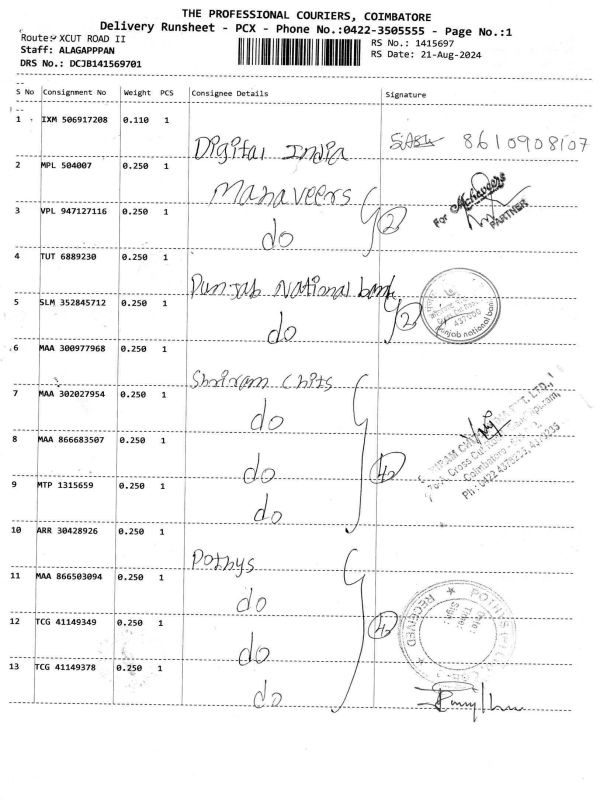 THE PROFESSIONAL COURIERS, COIMBATORE
Delivery Runsheet - PCX - Phone No.:0422-3505555 - Page No.:1
Route: XCUT ROAD II
RS No.: 1415697
Staff: ALAGAPPPAN
RS Date: 21-Aug-2024
DRS No.: DCJB141569701
S No Consignment No Weight PCS Consignee Details Signature
1 IXM 506917208 0.110 1 Digital India 8610908107
2 MPL 504007 0.250 1 Mahaveers
For Mahaveers
PARTNER
3 VPL 947127116 0.250 1 do 2
4 TUT 6889230 0.250 1 Punjab National bank
5 SLM 352845712 0.250 1 do 2
punjab national bank
6 MAA 300977968 0.250 1 Shriram Chits
7 MAA 302027954 0.250 1 do
8 MAA 866683507 0.250 1 do 4
Coimbatore
9 MTP 1315659 0.250 1 do
10 ARR 30428926 0.250 1 Pothys
11 MAA 866503094 0.250 1 do
12 TCG 41149349 0.250 1 do 4
RECEIVED
13 TCG 41149378 0.250 1 do